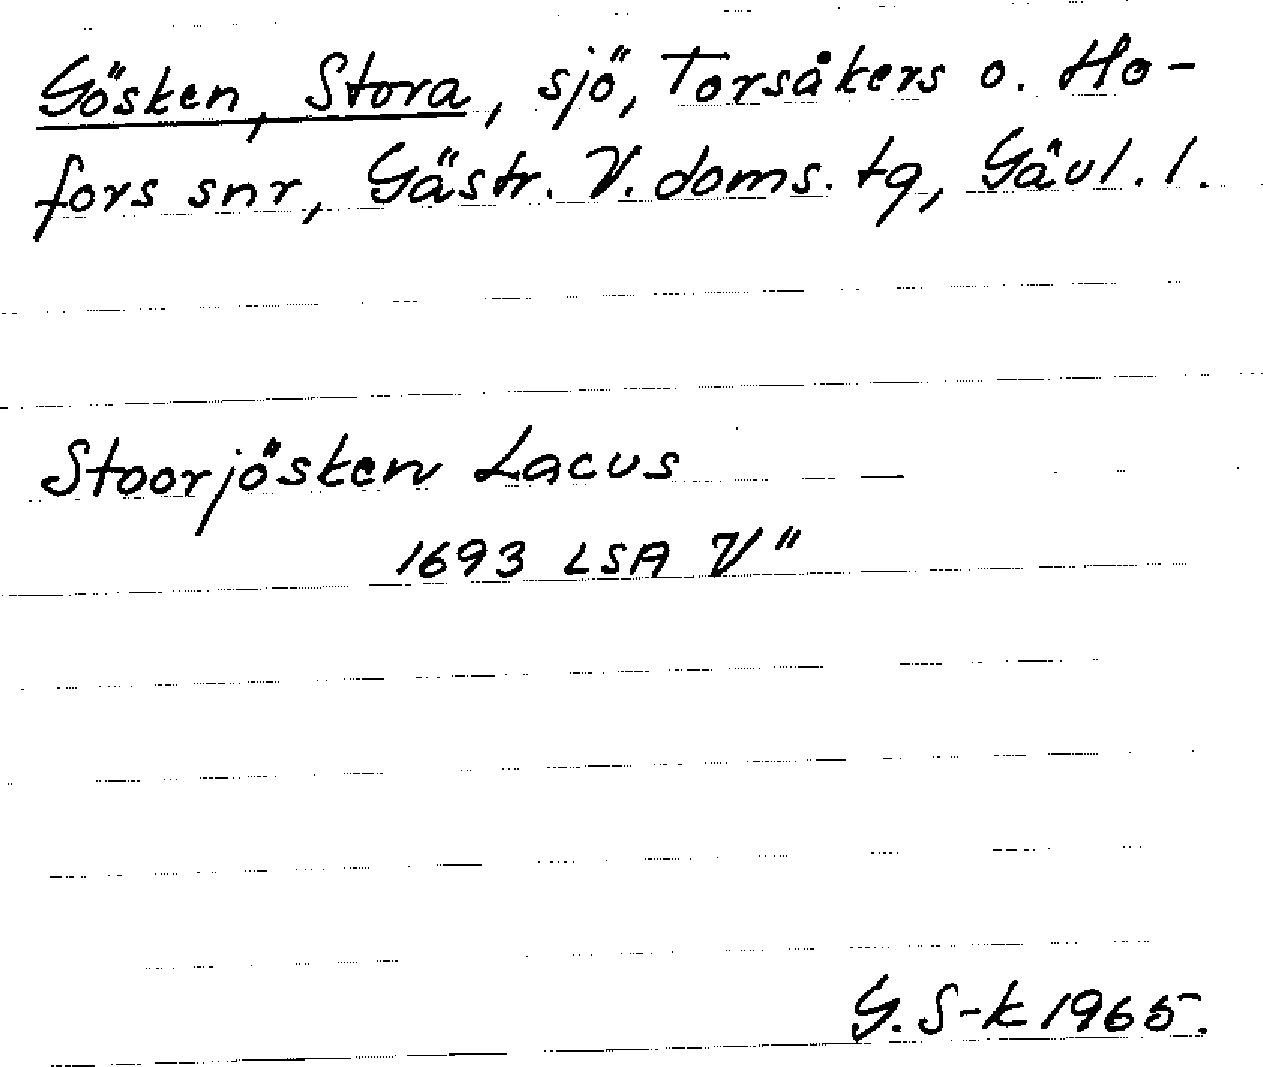 Gösken, Stora, sjö, Torsåkers o. Ho-
fors snr, Gästr. V. doms. tg, Gävl. l.
Stoorjösken Lacus
1693 LSA V"
G. S-k 1965.